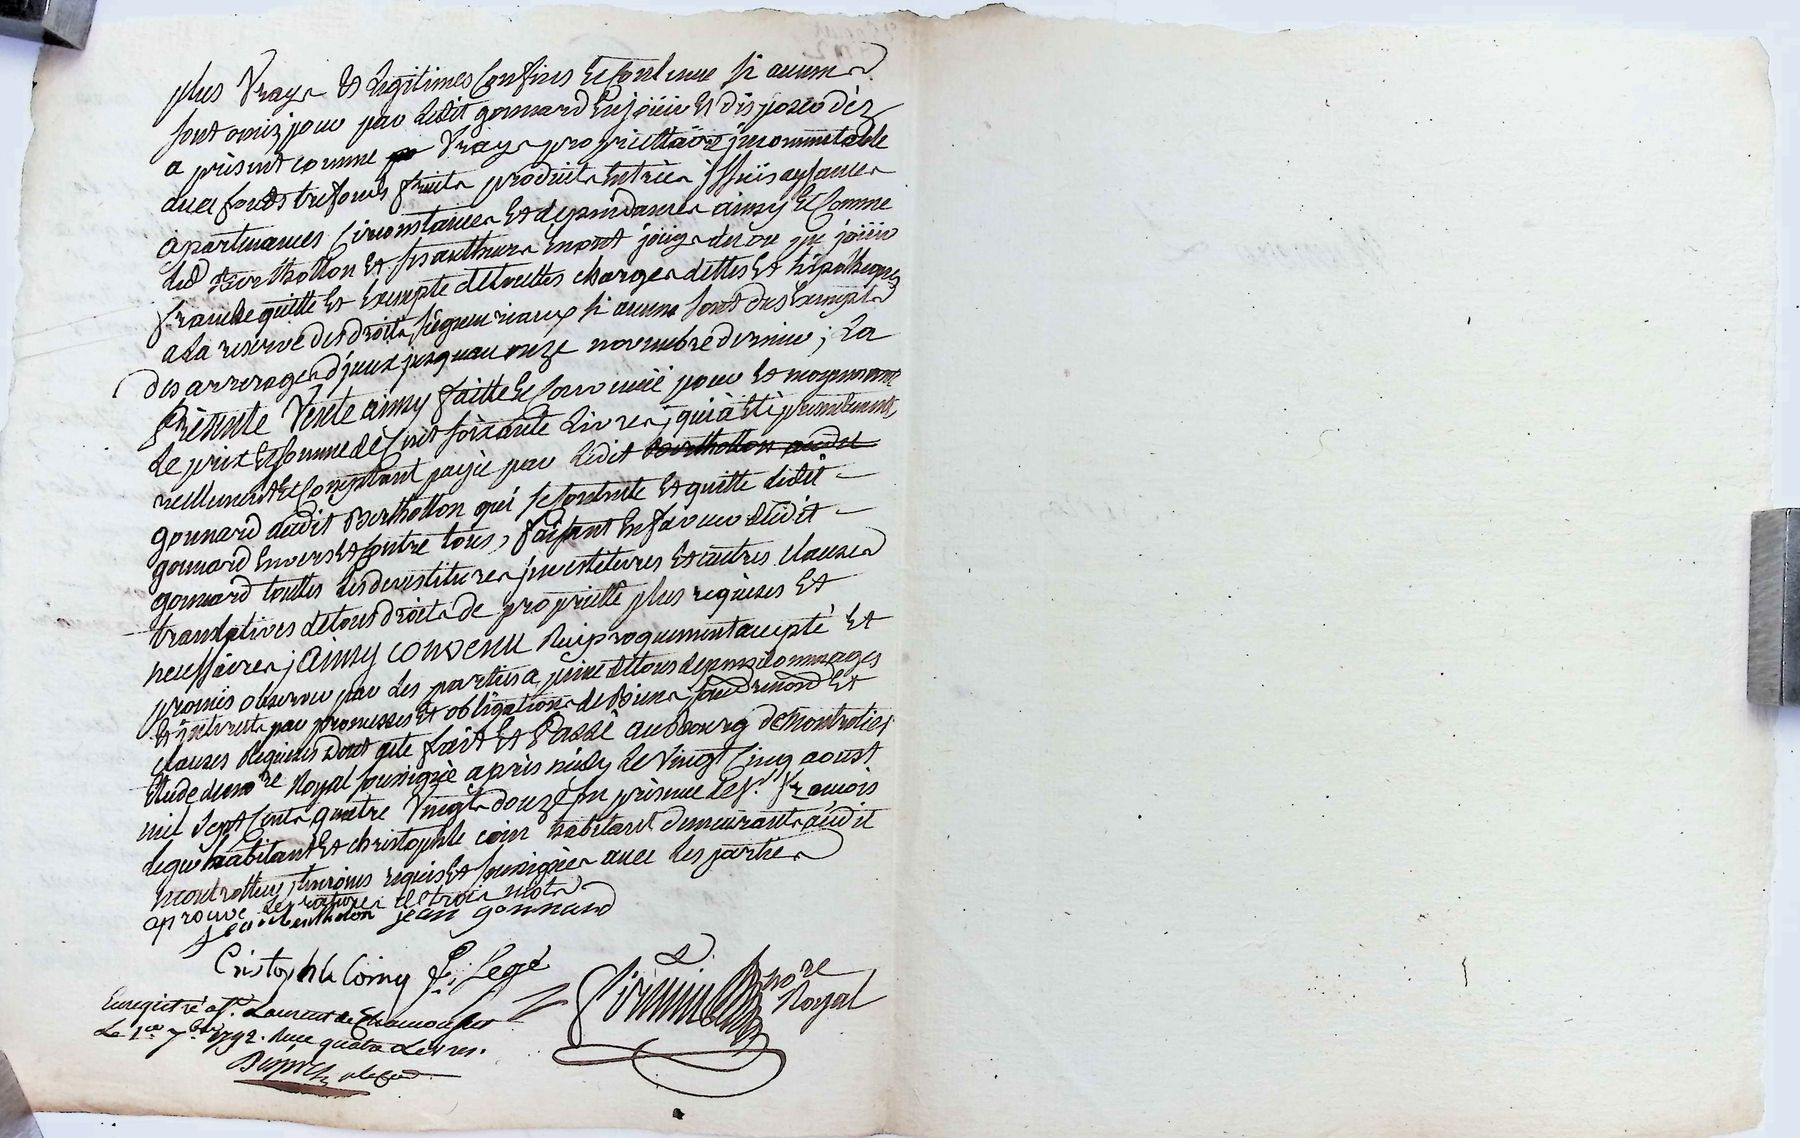 plus vrays et legitimes confins et contenue si aucuns
sont omis pour par ledit gonnard en joüir et disposer déz
a présent comme vray proprietaire jncommutable
avec fonds trefonds fruits produits entrées jssuës aysances
apartenances circonstances et dependances ainsy et comme
led Berthollon et ses autheurs en ont joüy deu ou pu joüir
franche quitte et exempte de touttes charges dettes et hipotheques
a la reserve des droits seigneuriaux si aucuns sont dus exempts
des arrerages d'jceux jusquau onze novembre dernier ; La
présente Vente ainsy faitte et convenüe pour et moyennant
le prix et somme de cent soixante Livres, qui a été présentement
reellement et comptant payée par ledit Berthollon audit
gonnard audit Berthollon qui s'en contente et quitte ledit
gonnard envers et contre tous, faisant en faveur dudit
gonnard touttes les devestitures jnvestitures et autres clauses
translatives de tous droits de proprietté plus requises et
necessaires ; Ainsy convenu reciproquement accepté et
promis observer par les parties a peine de tous depens dommages
et jnterets par promesses et obligations de Biens
clauses Requises dont acte fait et Passé au Bourg de Montrotier
Etude du nore Royal soussigné après midy le vingt cinq aoust
mil sept cents quatre vingts douze en présence de sr. François
legé habitant et christophle coin habitant demeurants audit
montrottier, temoins requis et soussignés avec les parties
aprouvé les ratures de trois mots
Berthollon jean gonnard
Cristophle Coiny f. Legé
nore Royal
Enregistré a St. Laurent de Chamousset
Le 1er 7bre 1792. Reçu quatre Livres.